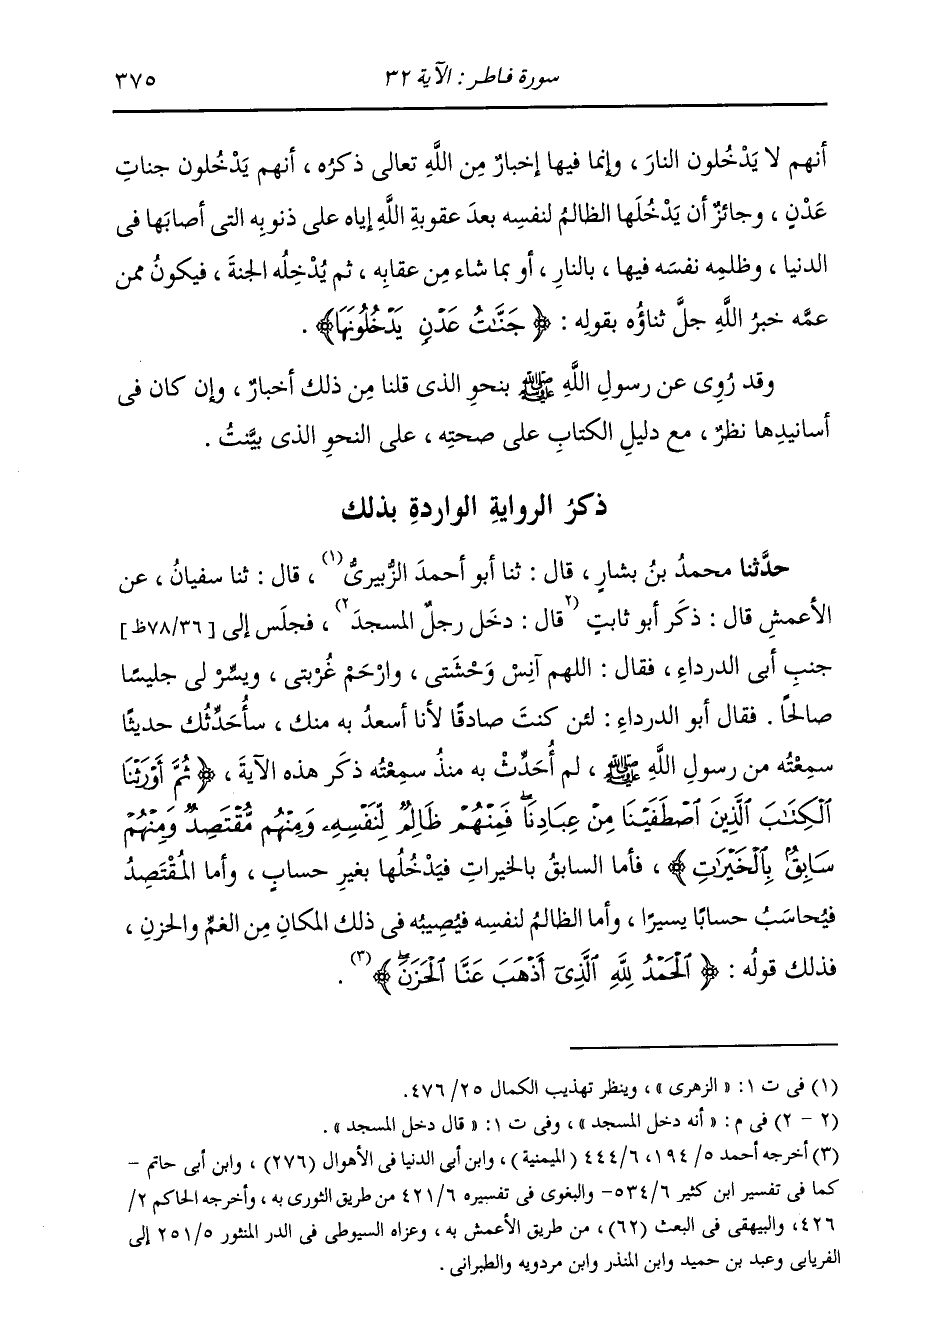 سورة فاطر : الآية ٣٢
٣٧٥
أنهم لا يَدْخُلون النارَ ، وإنما فيها إخبارٌ مِن اللَّهِ تعالى ذكرُه ، أنهم يَدْخُلون جناتِ
عَدْنٍ ، وجائزٌ أن يَدْخُلَها الظالمُ لنفسِه بعدَ عقوبةِ اللَّهِ إياه على ذنوبِه التى أصابَها فى
الدنيا ، وظلمِه نفسَه فيها ، بالنارِ ، أو بما شاء مِن عقابِه ، ثم يُدْخِلُه الجنةَ ، فيكونُ ممن
عمَّه خبرُ اللَّهِ جلَّ ثناؤُه بقولِه : ﴿ جَنَّٰتُ عَدْنٍ يَدْخُلُونَهَا ﴾ .
وقد رُوِى عن رسولِ اللَّهِ ﷺ بنحوِ الذى قلنا مِن ذلك أخبارٌ ، وإن كان فى
أسانيدِها نظرٌ ، مع دليلِ الكتابِ على صحتِه ، على النحوِ الذى بيَّنتُ .
ذكرُ الروايةِ الواردةِ بذلك
حدَّثنا محمدُ بنُ بشارٍ ، قال : ثنا أبو أحمدَ الزُّبيرىُّ(١) ، قال : ثنا سفيانُ ، عن
الأعمشِ قال : ذكَر أبو ثابتٍ (٢قال : دخَل رجلٌ المسجدَ٢) ، فجلَس إلى [٧٨/٣٦ظ]
جنبِ أبى الدرداءِ ، فقال : اللهم آنِسْ وَحْشَتى ، وارْحَمْ غُرْبتى ، ويسِّرْ لى جليسًا
صالحًا . فقال أبو الدرداءِ : لئن كنتَ صادقًا لأنا أسعدُ به منك ، سأُحَدِّثُك حديثًا
سمِعْتُه من رسولِ اللَّهِ ﷺ ، لم أُحَدِّثْ به منذُ سمِعْتُه ذكر هذه الآيةَ ، ﴿ ثُمَّ أَوْرَثْنَا
ٱلْكِتَٰبَ ٱلَّذِينَ ٱصْطَفَيْنَا مِنْ عِبَادِنَاۖ فَمِنْهُمْ ظَالِمٌ لِّنَفْسِهِۦ وَمِنْهُم مُّقْتَصِدٌ وَمِنْهُمْ
سَابِقٌۢ بِٱلْخَيْرَٰتِ ﴾ ، فأما السابقُ بالخيراتِ فيَدْخُلُها بغيرِ حسابٍ ، وأما المُقْتَصِدُ
فيُحاسَبُ حسابًا يسيرًا ، وأما الظالمُ لنفسِه فيُصِيبُه فى ذلك المكانِ مِن الغمِّ والحزنِ ،
فذلك قولُه : ﴿ ٱلْحَمْدُ لِلَّهِ ٱلَّذِىٓ أَذْهَبَ عَنَّا ٱلْحَزَنَۖ ﴾(٣) .
(١) فى ت ١: « الزهرى » ، وينظر تهذيب الكمال ٢٥/ ٤٧٦.
(٢ - ٢) فى م : « أنه دخل المسجد » ، وفى ت ١: « قال دخل المسجد » .
(٣) أخرجه أحمد ٥/ ١٩٤، ٤٤٤/٦ (الميمنية) ، وابن أبى الدنيا فى الأهوال (٢٧٦) ، وابن أبى حاتم -
كما فى تفسير ابن كثير ٥٣٤/٦- والبغوى فى تفسيره ٤٢١/٦ من طريق الثورى به ، وأخرجه الحاكم ٢/
٤٢٦، والبيهقى فى البعث (٦٢) ، من طريق الأعمش به ، وعزاه السيوطى فى الدر المنثور ٢٥١/٥ إلى
الفريابى وعبد بن حميد وابن المنذر وابن مردويه والطبرانى .